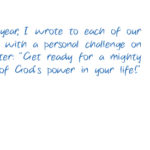 year, I wrote to each of our
with a personal challenge on
ter: "Get ready for a mighty
of God's power in your life!"